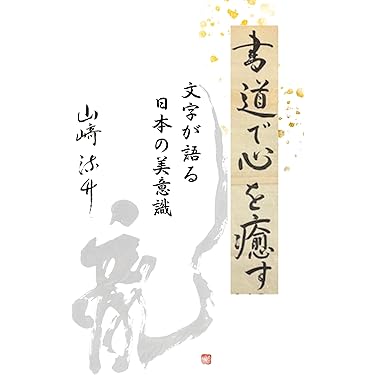 書道で心を癒す
文字が語る
日本の美意識
山﨑
龍